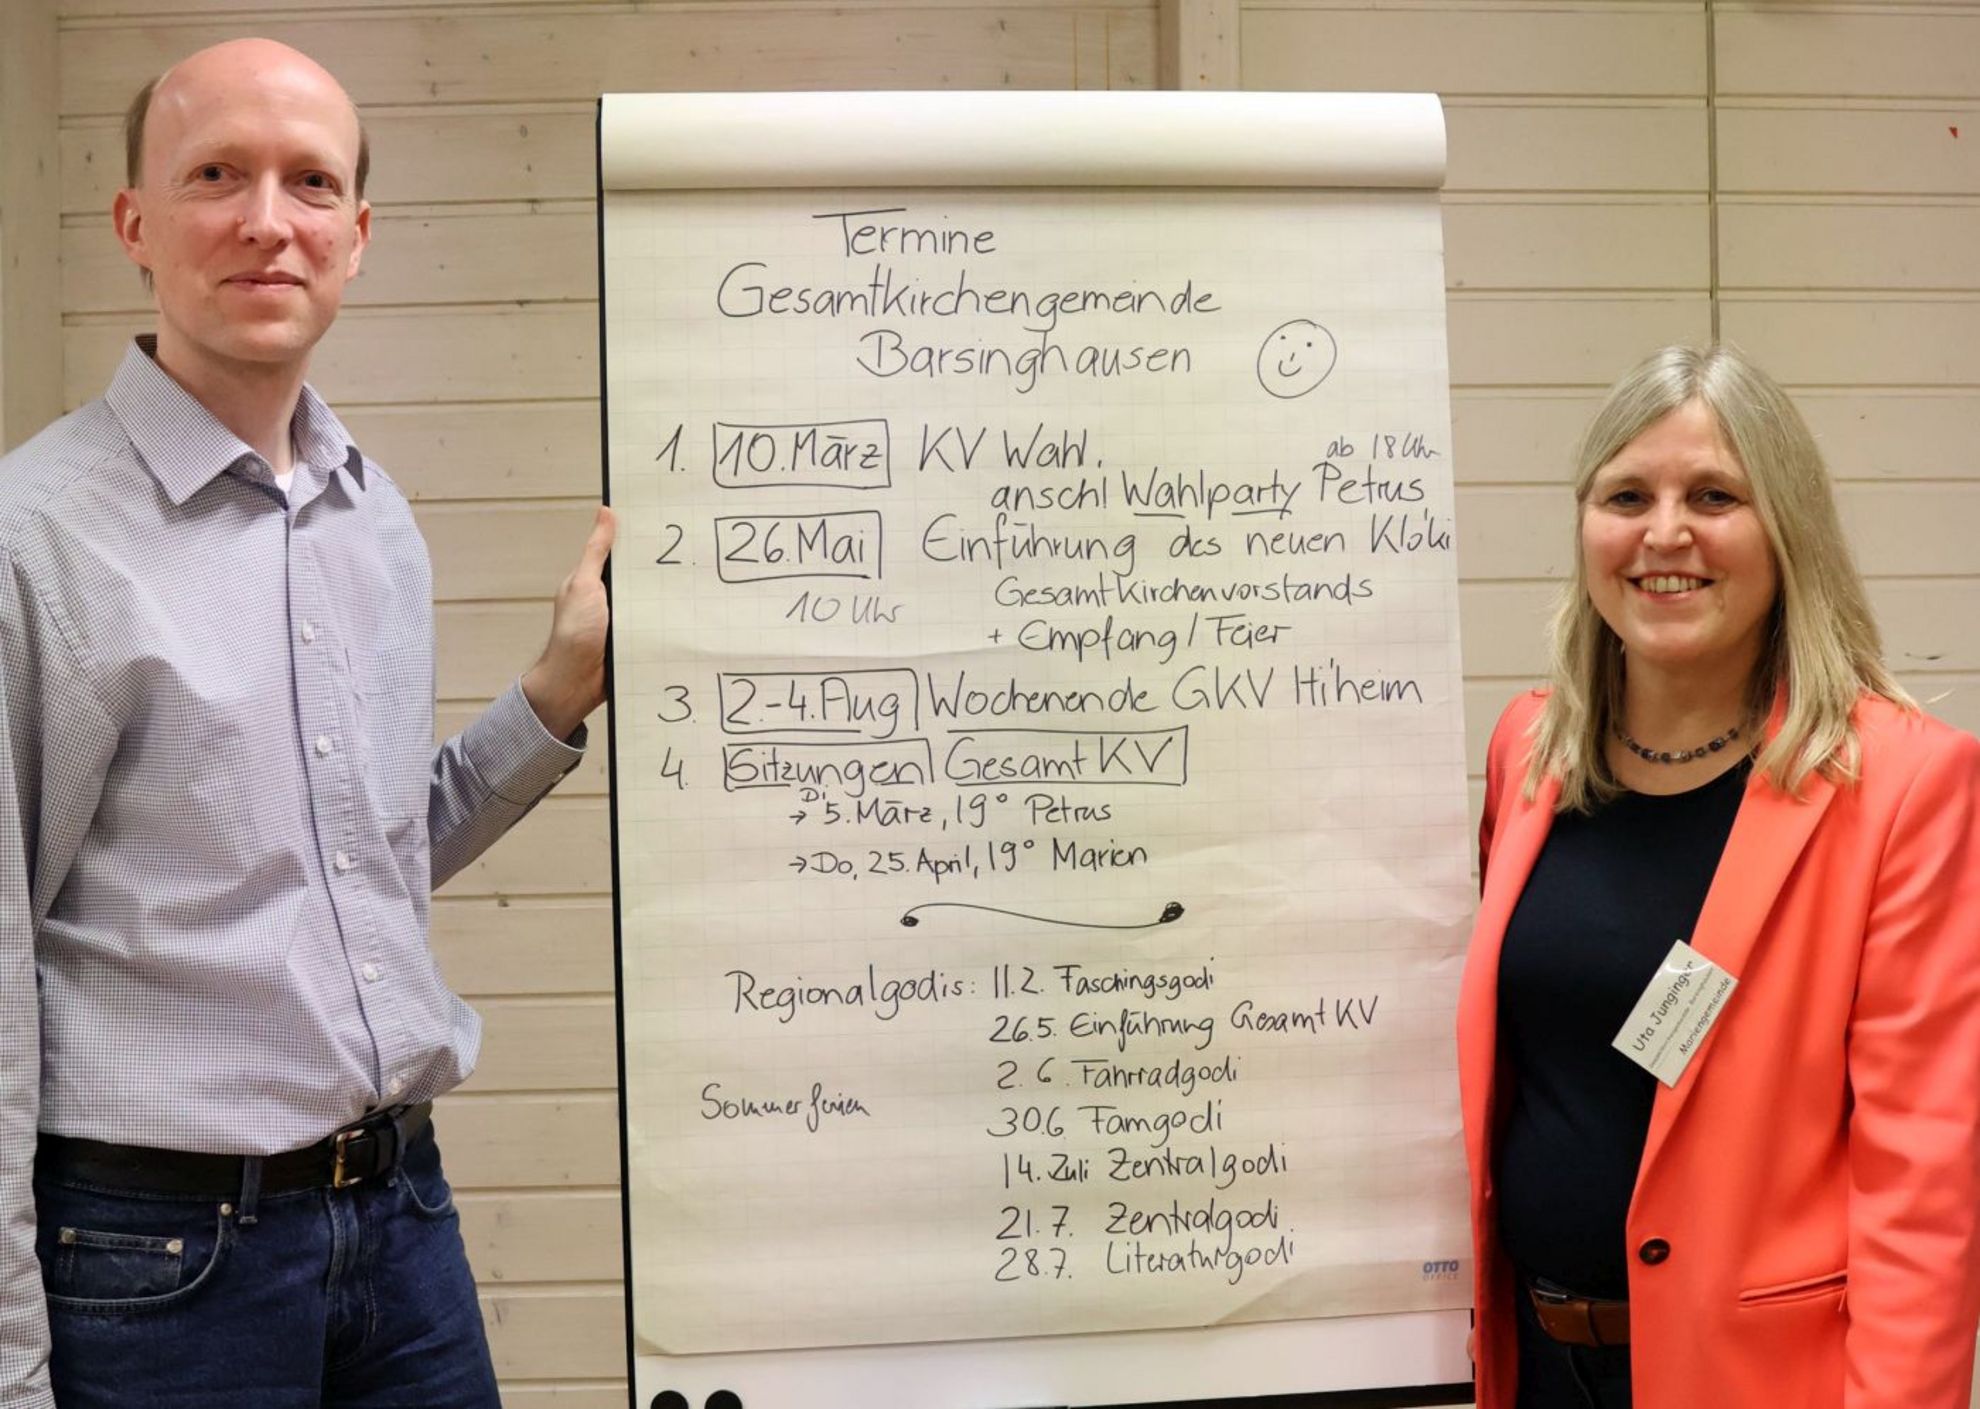 Termine
Gesamtkirchengemeinde
Barsinghausen
1. 10. März KV Wahl.
ab 18 Uhr
anschl Wahlparty Petrus
2. 26. Mai Einführung des neuen Klö'ki
10 Uhr Gesamtkirchenvorstands
+ Empfang / Feier
3. 2.-4. Aug Wochenende GKV Hi'heim
4. Sitzungen Gesamt KV
Di
→ 5. März, 19° Petrus
→ Do, 25. April, 19° Marien
Regionalgodis: 11.2. Faschingsgodi
26.5. Einführung Gesamt KV
2.6. Fahrradgodi
Sommerferien
30.6 Famgodi
14. Juli Zentralgodi
21.7. Zentralgodi
28.7. Literaturgodi
OTTO
OFFICE
Uta Junginger
Mariengemeinde